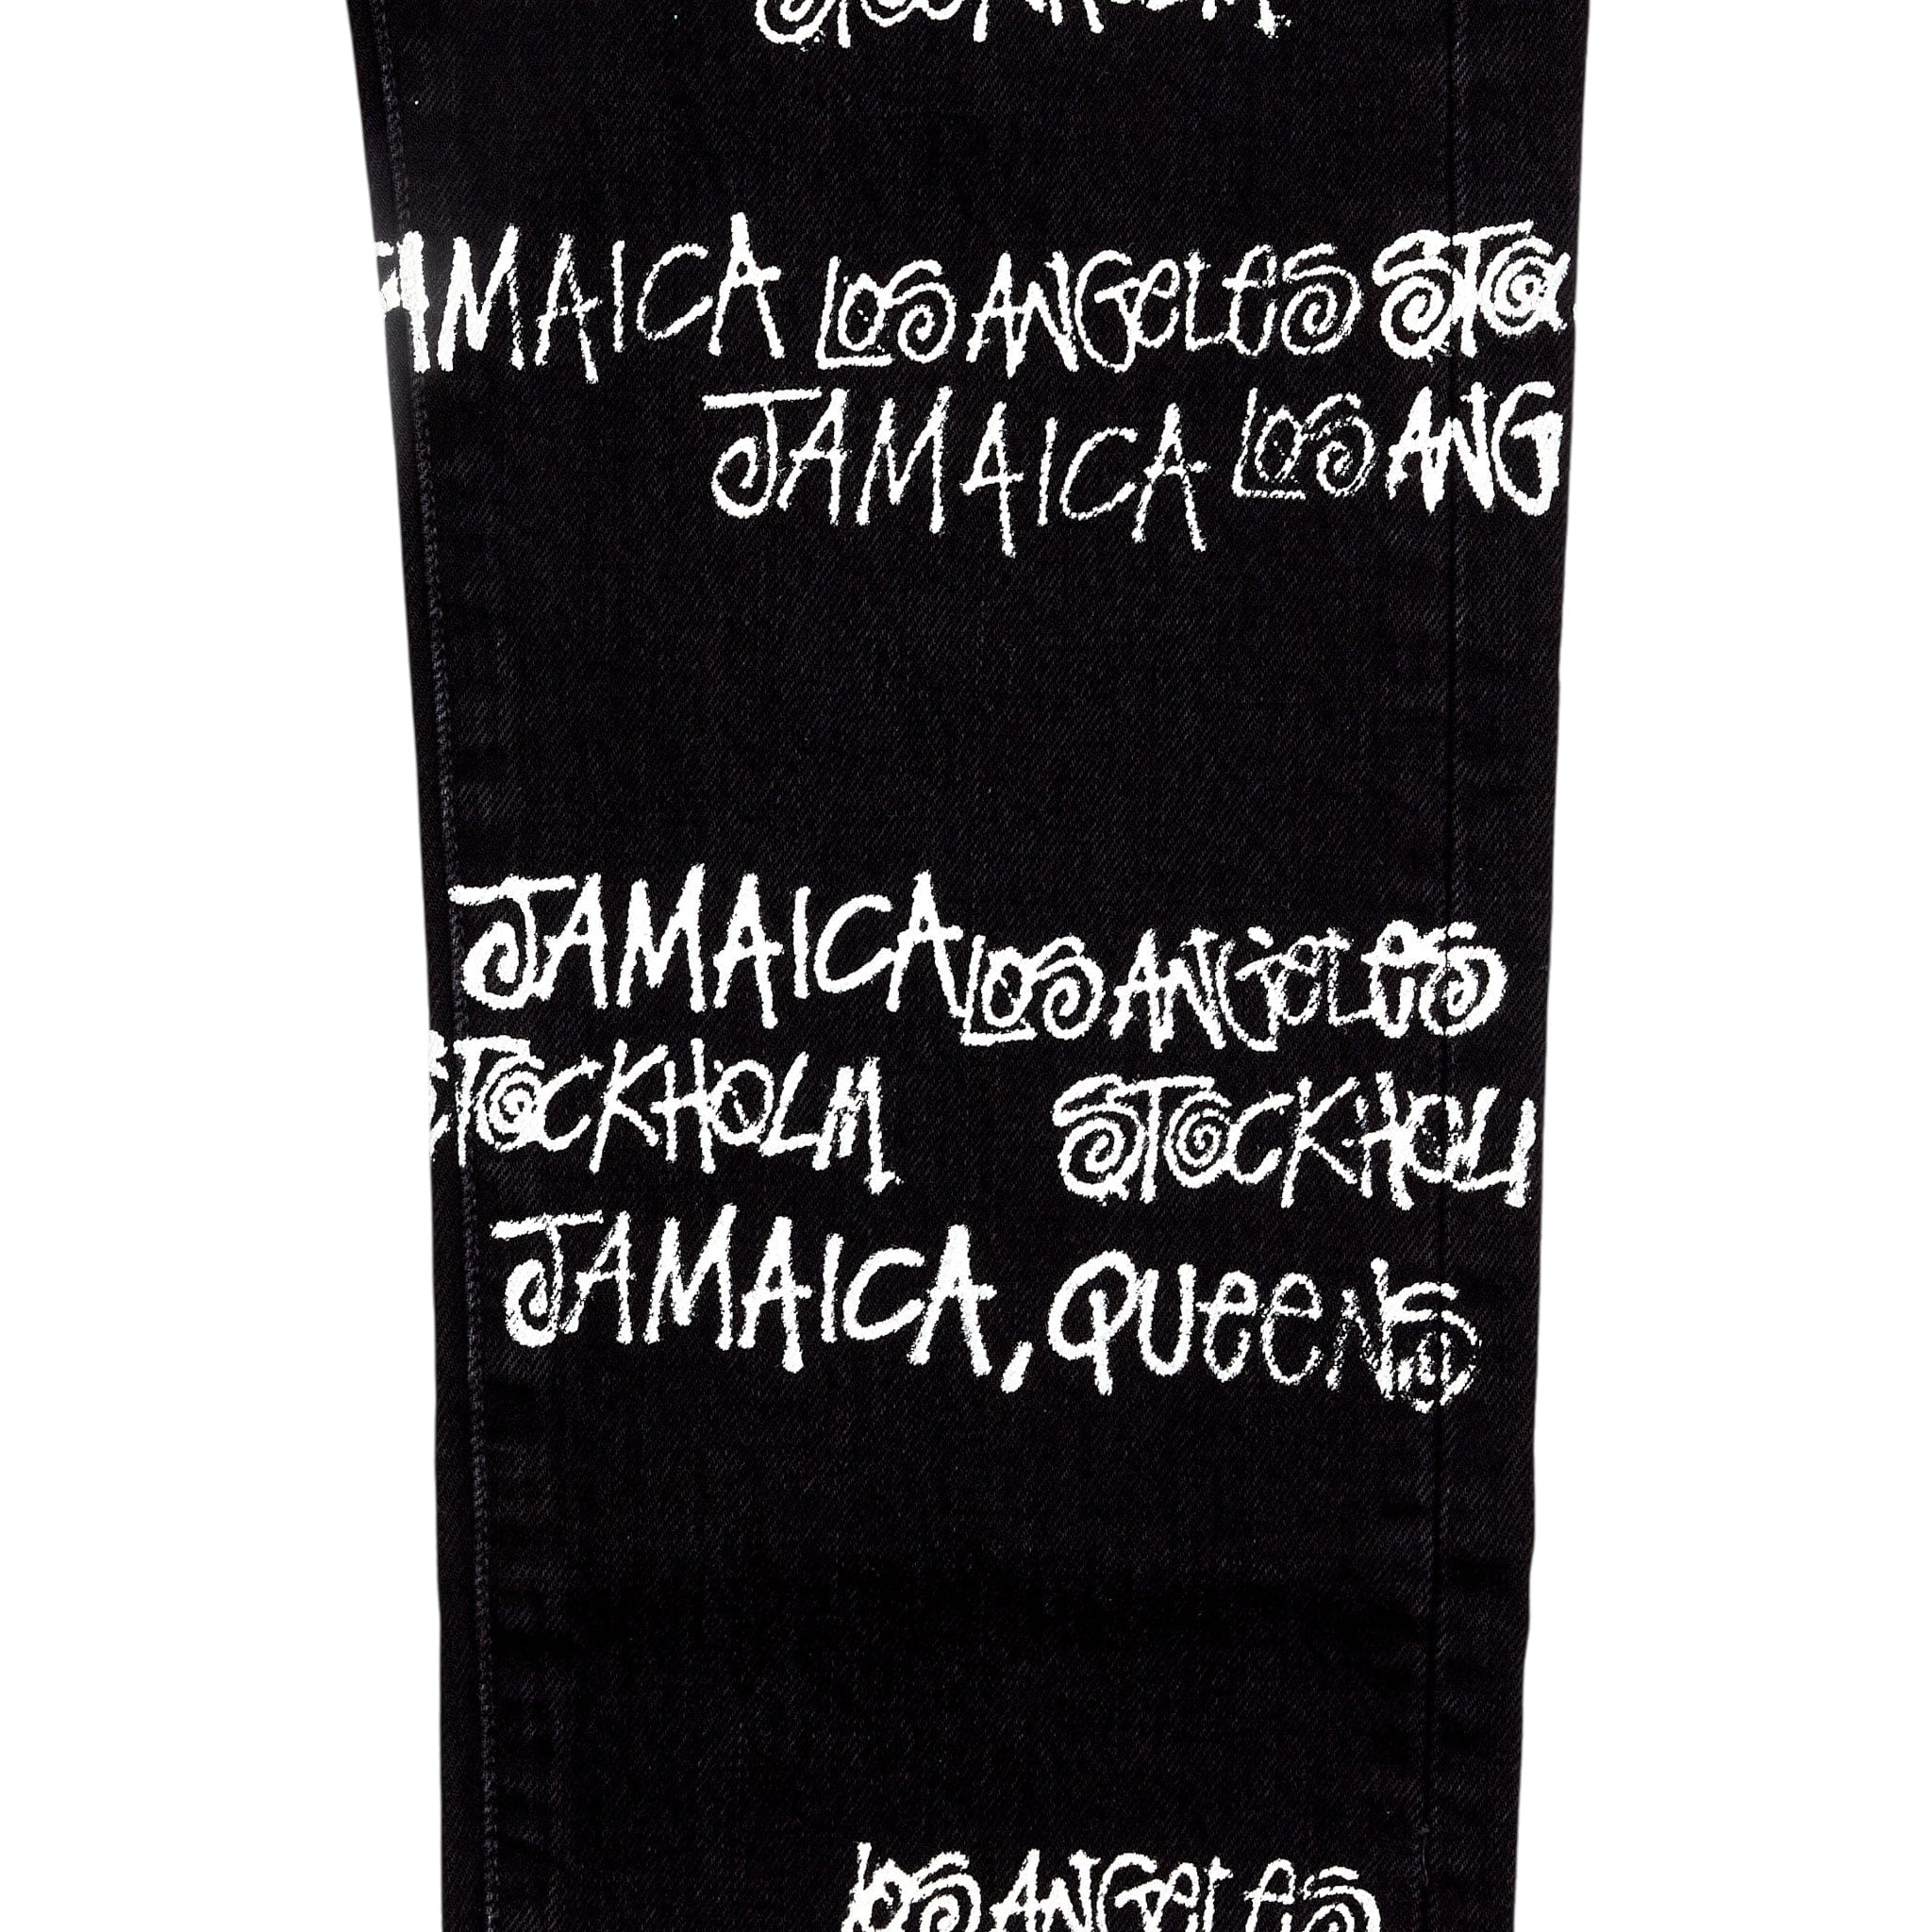 STOCKHOLM
JAMAICA LOS ANGELES STO
JAMAICA LOS ANG
JAMAICA LOS ANGELES
STOCKHOLM STOCKHOL
JAMAICA, QUEENS
LOS ANGELES